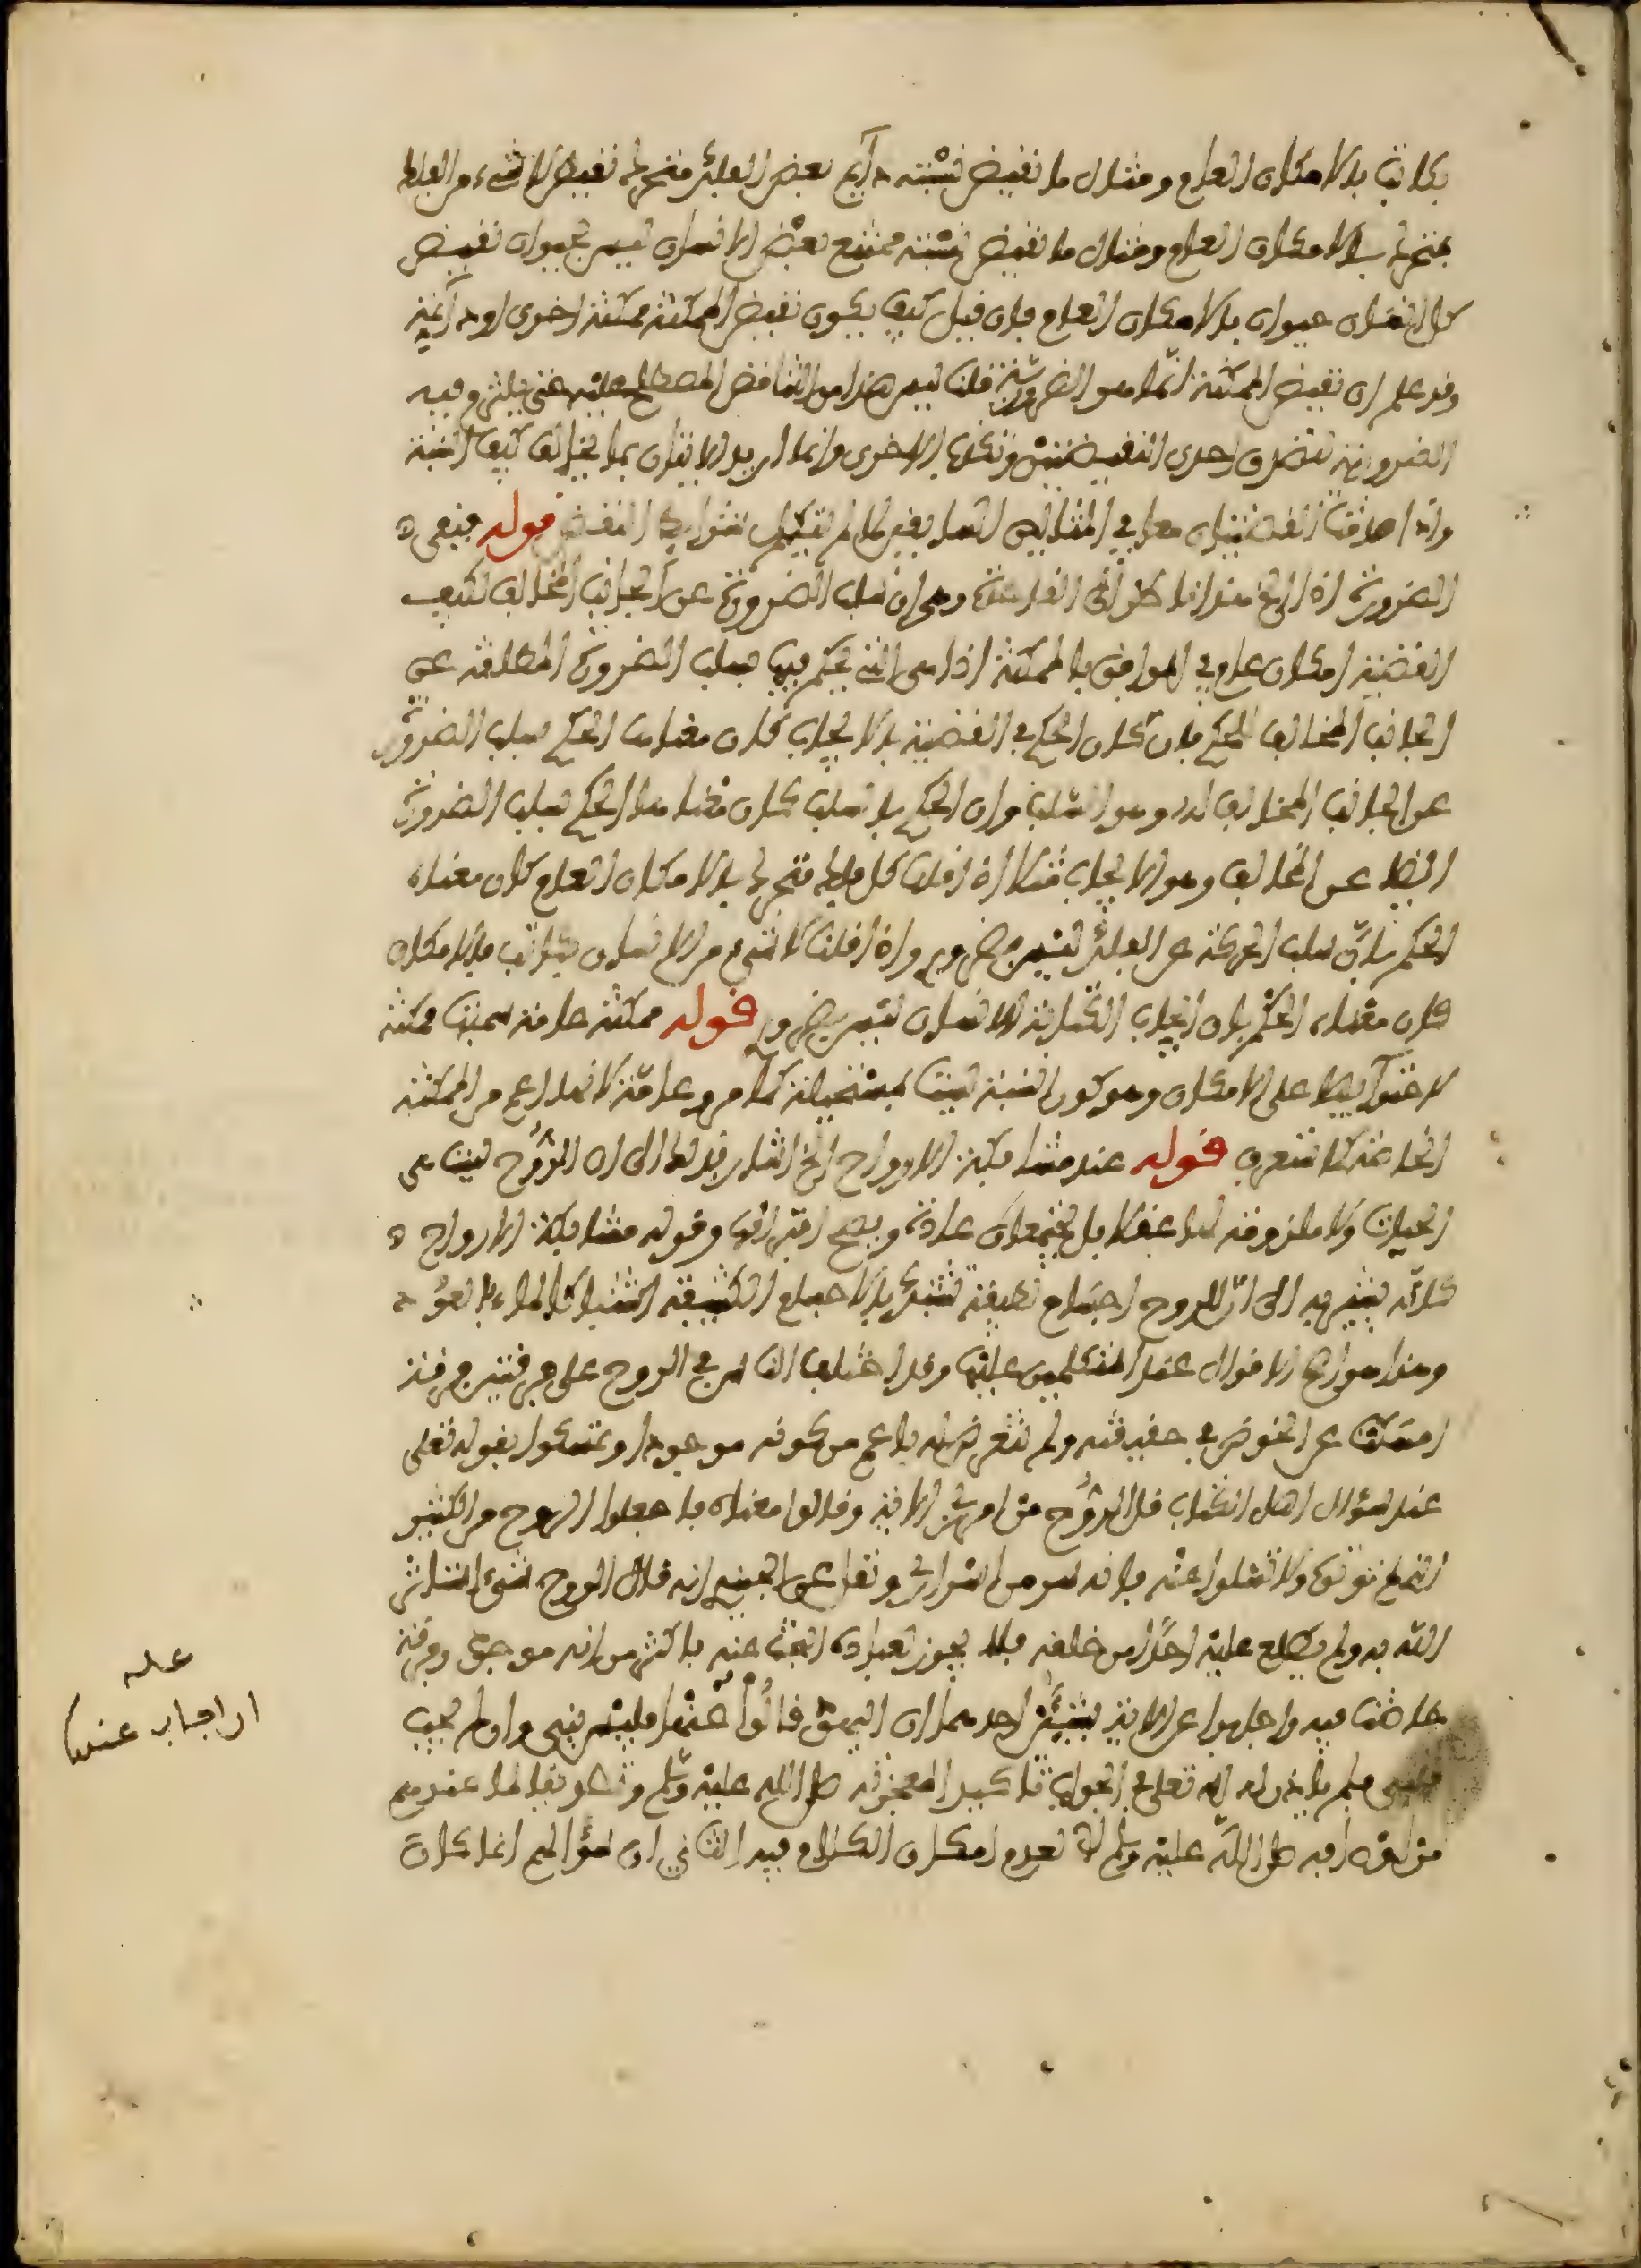 بكاتب بالامكان العام ومثال ما نقيض نسبته دائم بعض الفلك متحرك نقيض لا شيء من الفلك
بمتحرك بالامكان العام ومثال ما نقيض نسبته ممتنع بعض الانسان ليس بحيوان نقيض
كل انسان حيوان بالامكان العام فان قيل كيف يكون نقيض الممكنة ممكنة اخرى او دائمة
وقد علم ان نقيض الممكنة انما هو الضرورية قلنا ليس هذا من التناقض المصطلح عليه حتى يلتزم فيه
الضرورية لصدق احدى النقيضين وكذب الاخرى وانما اريد الاتيان بما يخالف كيف النسبة
واذا صدقت القضيتان معا في المثالين لعدم شرائط النقيض قوله فنفي
الضرورة اذا الخ هذا الفارق وهي ان سلب الضرورة عن الجانب المخالف لكيف
القضية امكان عام في الموافق بالممكنة اذا هي التي يحكم فيها بسلب الضرورة المطلقة عن
الجانب المخالف للحكم فان كان الحكم في القضية بالايجاب كان مفاد الحكم سلب الضرورة
عن الجانب المخالف له وهو السلب وان الحكم بالسلب كان مفاد الحكم سلب الضرورة
ايضا عن المخالف وهو الايجاب مثلا اذا قلت كل فلك متحرك بالامكان العام كان معناه
الحكم بان سلب الحركة عن الفلك ليس بضروري واذا قلت لا شيء من الانسان بكاتب بالامكان
كان معناه الحكم بان ايجاب الكتابة للانسان ليس بضروري قوله ممكنة عامة سميت ممكنة
لاحتوائها على الامكان وهو كون النسبة ليست بمستحيلة كما مر وعامة لانها اعم من الممكنة
الخاصة كما ستعرف قوله عند مشابكة الارواح الخ اشار بذلك الى ان الروح ليست هي
الحيات ولا ملزومة لها عقلا بل يجتمعان عادة ويصح افتراقها وقوله مشابكة الارواح
كانه يشير به الى ان الروح اجسام لطيفة تشتبك بالاجسام الكثيفة اشتباك الماء بالعود
وهذا هو اصح الاقوال عند المتكلمين عليها وقد اختلف الناس في الروح على فرقتين فرقة
امسكت عن الخوض في حقيقته ولم تتعرض له باعم من كونه موجودا وتمسكوا بقوله تعلى
عند سؤال اهل الكتاب قل الروح من امر ربي الاية وقالوا معناه فاجعلوا الروح من الكثير
الذي لم توتوه ولا تسئلوا عنه فانه سر من اسراري ونقل عن الجنيد انه قال الروح شيء استاثر
الله به ولم يطلع عليه احدا من خلقه فلا يجوز لعباده البحث عنه باكثر من انه موجود وفرقة
خاضت فيه واجابوا عن الاية بشيئين احدهما ان اليهود قالوا عنها فليس بنبي وان لم يجب
فنبي فلم ياذن له الله تعلى في الجواب تاكيدا لمعجزته صلى الله عليه وسلم وتصديقا لما عندهم
من اوصافه صلى الله عليه وسلم لا لعدم امكان الكلام فيه الثاني ان سؤالهم انما كان
عله
ان اجاب عنها